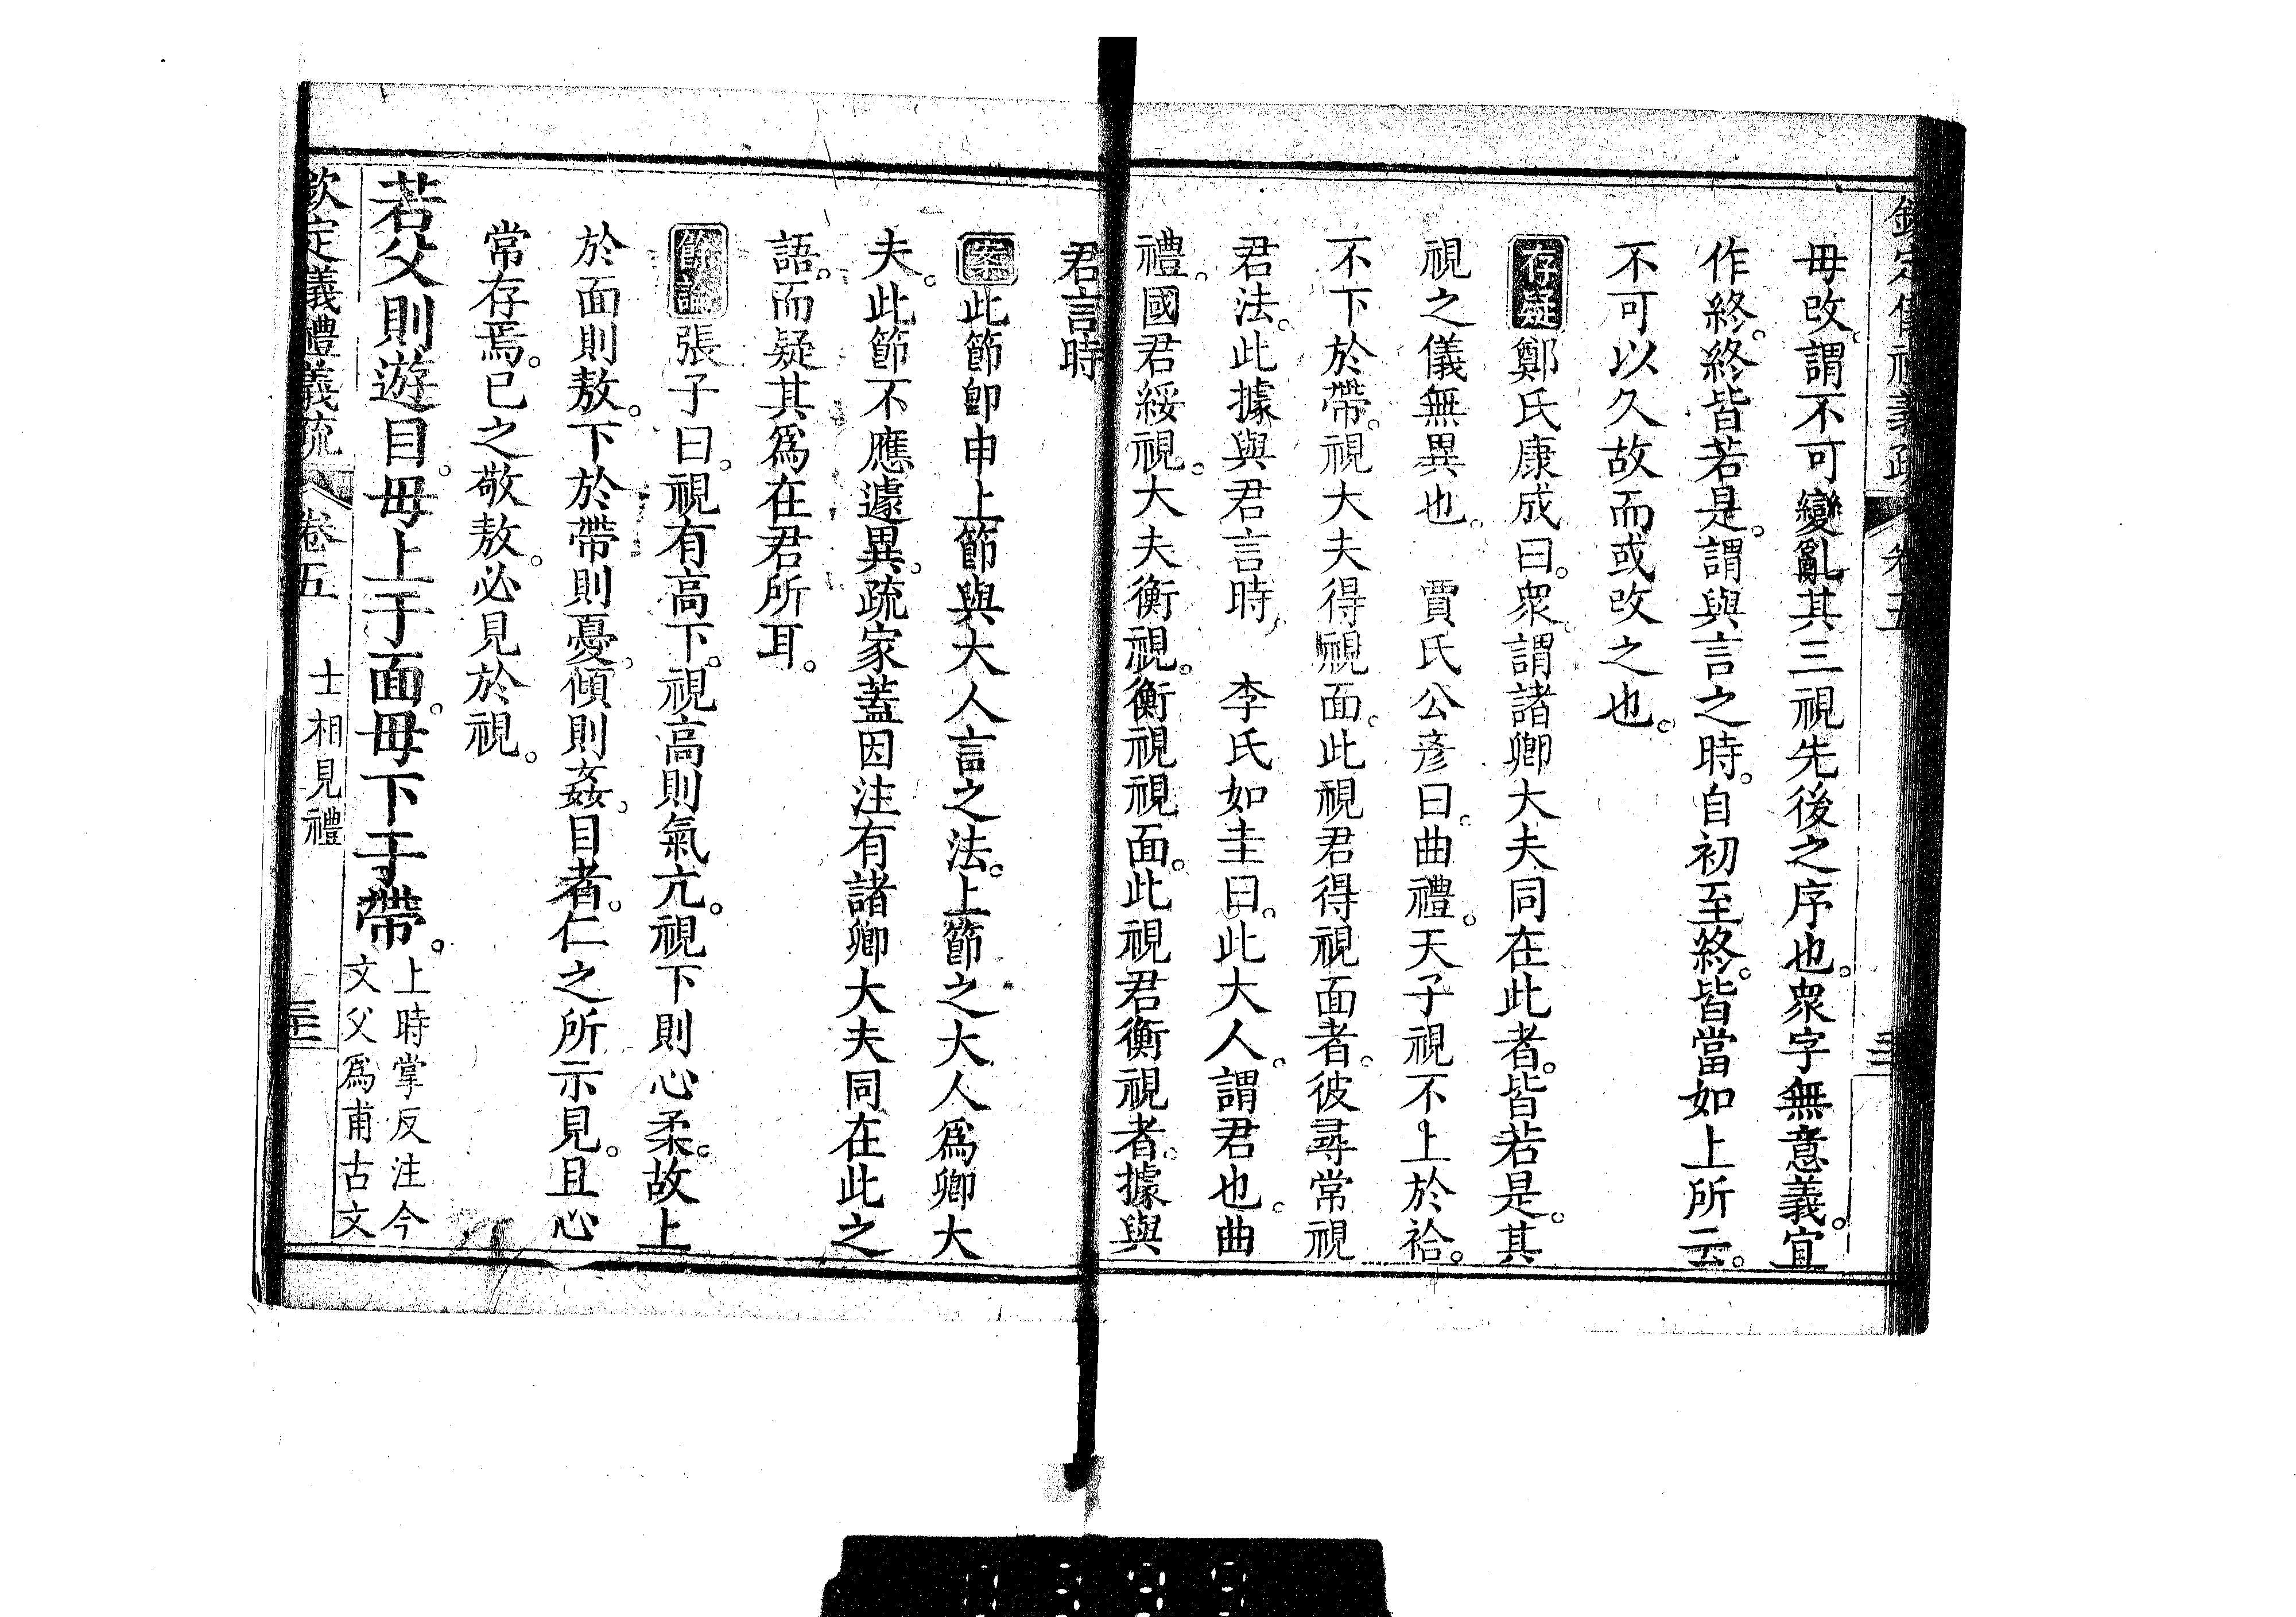 欽定儀禮義疏 卷五
毋改。謂不可變亂其三視先後之序也。衆字無意義。宜
作終。終皆若是。謂與言之時。自初至終。皆當如上所云。
不可以久故而或改之也。
存疑 鄭氏康成曰。衆。謂諸卿大夫同在此者。皆若是。其
視之儀無異也。 賈氏公彥曰。曲禮。天子視不上於袷。
不下於帶。視大夫得視面。此視君得視面者。彼尋常視
君法。此據與君言時。 李氏如圭曰。此大人。謂君也。曲
禮。國君綏視。大夫衡視。衡視視面。此視君衡視者。據與
君言時
案 此節卽申上節與大人言之法。上節之大人爲卿大
夫。此節不應遽異。疏家蓋因注有諸卿大夫同在此之
語。而疑其爲在君所耳。
餘論 張子曰。視有高下。視高則氣亢。視下則心柔。故上
於面則敖。下於帶則憂。傾則姦。目者。仁之所示見。且心
常存焉。已之敬敖。必見於視。
若父則遊目。毋上于面。毋下于帶。上時掌反注今
文父爲甫古文
欽定儀禮義疏 卷五 士相見禮